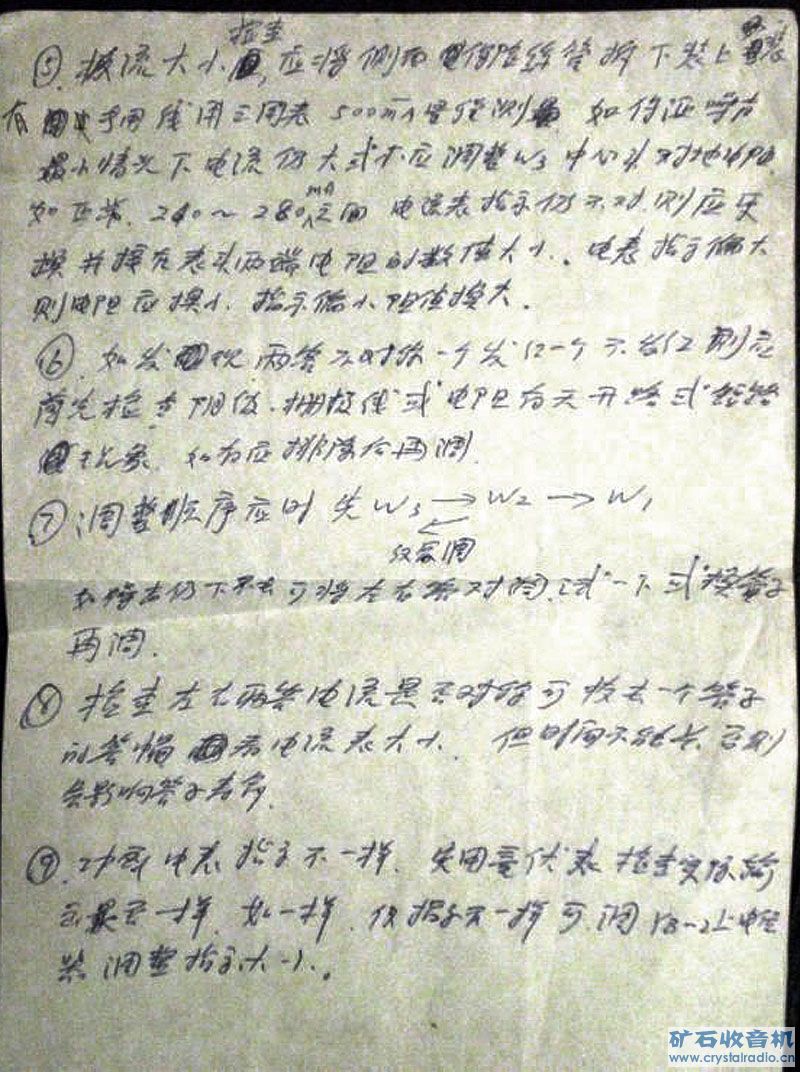 检查
⑤ 板流大小,应将侧面 保险丝管拆下装上
有 用线用三用表 500mA 量程测量 如保证噪声
最小情况下电流仍大或不应调整W3中心头对地电阻
如正常 240~280mA之间 电流表指示仍不对,则应更
换并接在表头两端电阻的数值大小。电表指示偏大
则电阻应换小 指示偏小阻值换大。
⑥ 如发现两管不对称一个发红一个不发红则应
首先检查阴极、栅极线或电阻有无开路或短路
现象 如有应排除后再调
⑦ 调整顺序应时 先W3 → W2 → W1
←
反复调
如噪声仍下不去可将左右管对调,试一下或换管子
再调.
⑧ 检查左右两管电流是否对称可拔去一个管子
的管帽 看电流表大小. 但时间不能长 否则
会影响管子寿命.
⑨ 功率电表指示不一样. 先用毫伏表检查实际输
出是否一样. 如一样, 仅指示不一样可调 上电位
器调整指示大小。
矿石收音机
www.crystalradio.cn